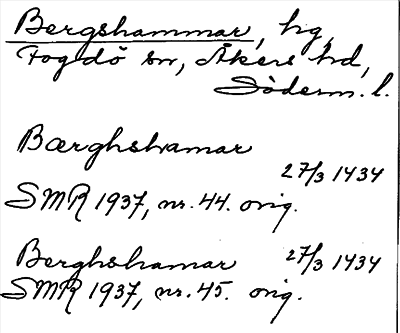 Bergshammar, hg,
Fogdö sn, Åkers hd,
Söderm. l.
Bærghshamar
27/3 1434
SMR 1937, nr. 44. orig.
Berghshamar 27/3 1434
SMR 1937, nr. 45. orig.